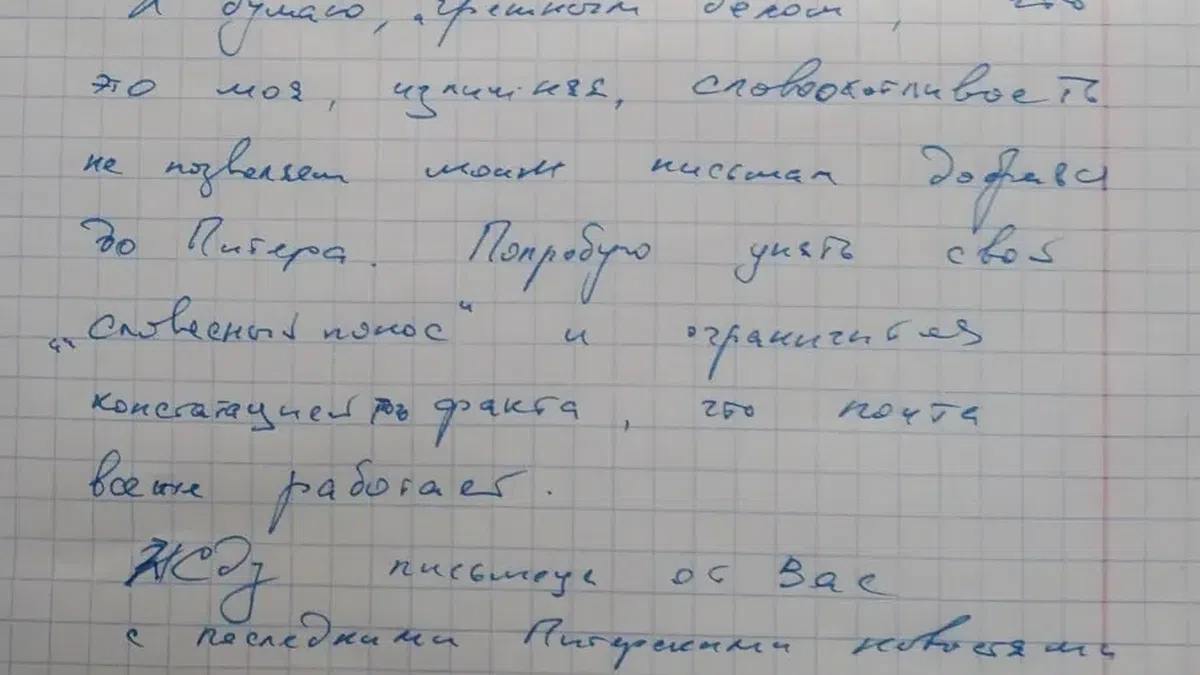 Я думаю, грешным делом, что
это моя, излишняя, словоохотливость
не позволяет моим письмам добраться
до Питера. Попробую унять свой
"словесный понос" и ограничится
констатацией факта, что почта
все же работает.
Жду письмеца от Вас
с последними Питерскими новостями